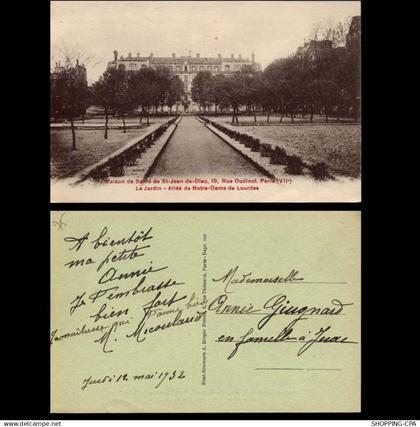 Maison de Santé de St-Jean-de-Dieu, 19, Rue Oudinot, Paris (VIIe)
Le Jardin - Allée de Notre-Dame de Lourdes
A bientôt
ma petite
Annie
Je t'embrasse
bien fort
qui t'aime bien
M. Micoulaud
Jeudi 12 mai 1932
Mademoiselle
Annie Guignard
en famille à
SHOPPING-CPA